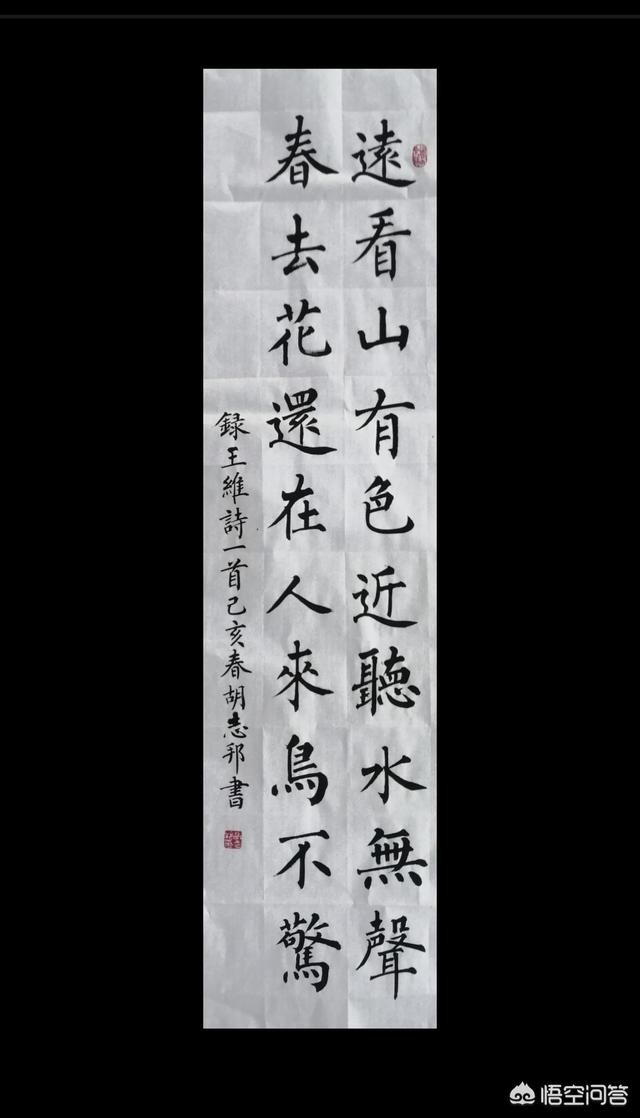 遠看山有色近聽水無聲
春去花還在人來鳥不驚
録王維詩一首己亥春胡志邦書
悟空问答